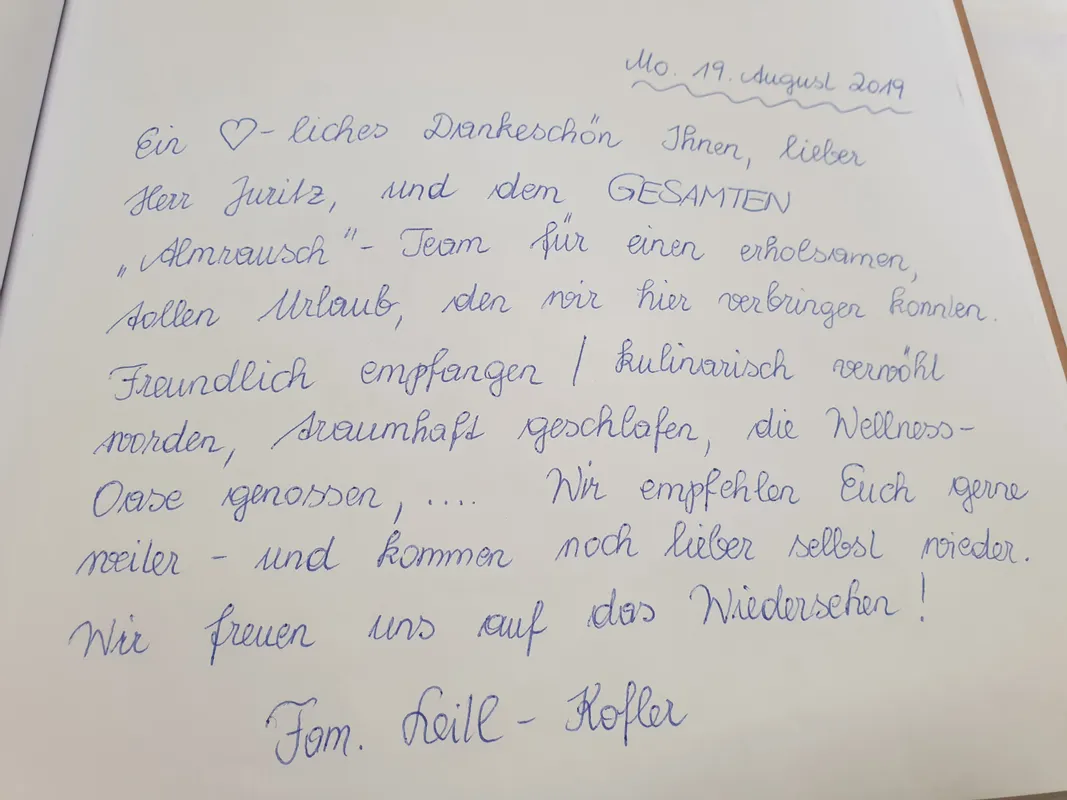 Mo. 19. August 2019
Ein ♡-liches Dankeschön Ihnen, lieber
Herr Juritz, und dem GESAMTEN
„Almrausch"-Team für einen erholsamen,
tollen Urlaub, den wir hier verbringen konnten.
Freundlich empfangen / kulinarisch verwöhl
worden, traumhaft geschlafen, die Wellness-
Oase genossen, .... Wir empfehlen Euch gerne
weiter - und kommen noch lieber selbst wieder.
Wir freuen uns auf das Wiedersehen!
Fam. - Kofler